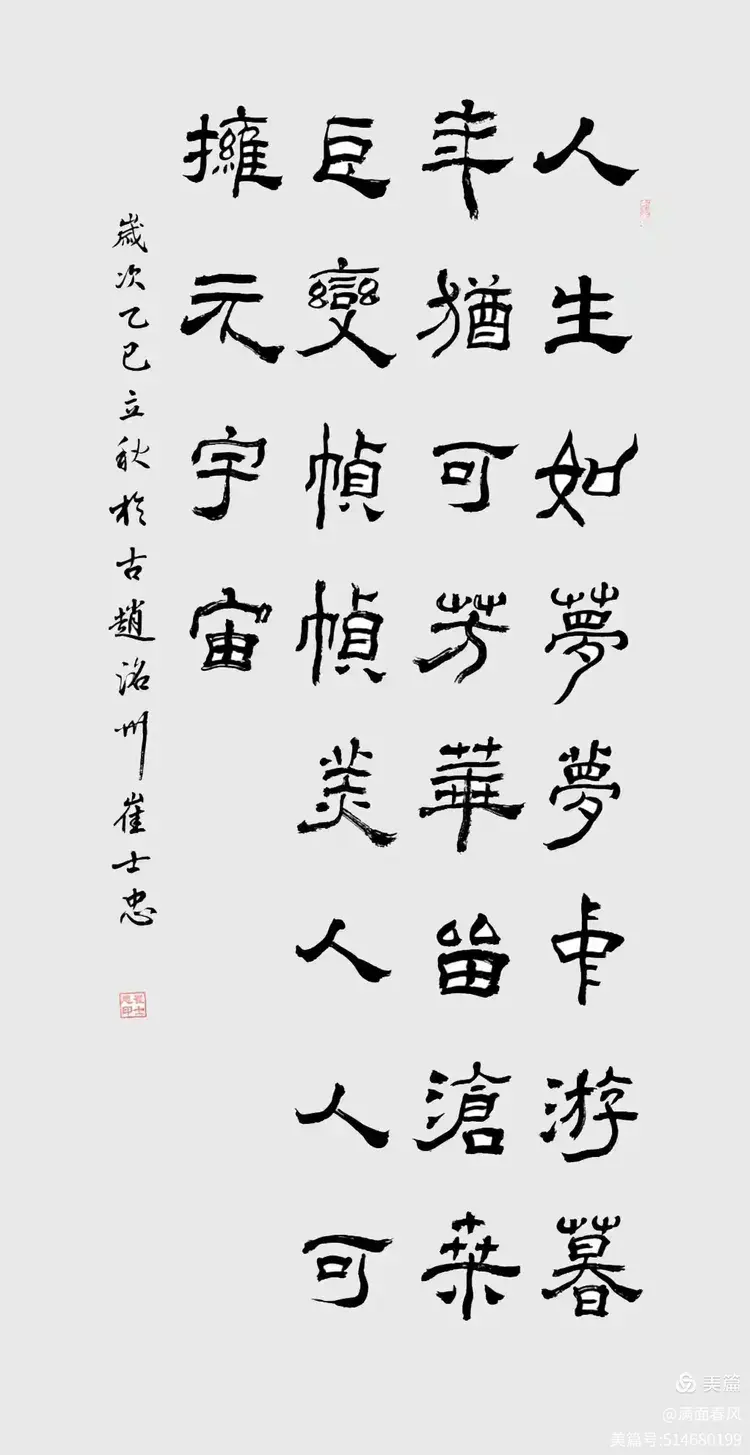 人生如夢夢中游暮
年猶可芳華留滄桒
巨變幀幀美人人可
擁元宇宙
歲次乙巳立秋於古趙洺州崔士忠
崔士忠印
美篇
@满面春风
美篇号:514680199